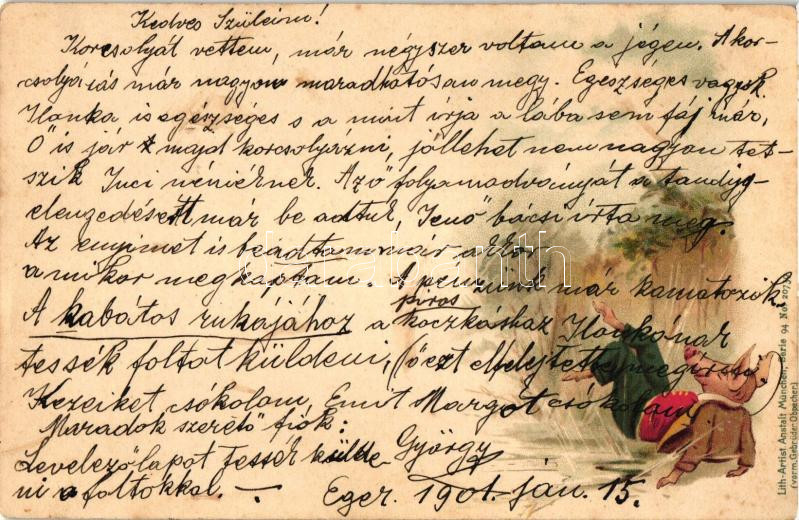 Kedves Szüleim!
Korcsolyát vettem, már négyszer voltam a jégen. A kor-
csolyázás már nagyon maradhatósan megy. Egészséges vagyok.
Ilonka is egészséges s a mint írja a lába sem fáj már,
Ő is jár majd korcsolyázni, jóllehet nem nagyon tet-
szik Juci néniéknek. Az ő folyamodványát a tandíj-
elengedésért már be adtuk, Jenő bácsi írta meg.
Az enyimet is beadtam már akkor
a mikor megkaptam. A pénzünk már kamatozik.
piros
A kabátos ruhájához a koczkáshoz Ilonkának
tessék foltot küldeni, (ő ezt elfelejtette megírni
Kezeiket csókolom, Emit Margot csókolom
Maradok szerető fiók:
György
Levelezőlapot tessék külde-
ni a foltokkal. —
Eger. 1901. jan. 15.
darabanth
Lith.-Artist Anstalt München, Serie 94 No. 2073
(vorm. Gebrüder Obpacher)